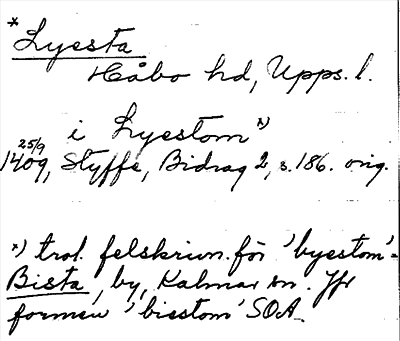 * Lyesta
Håbo hd, Upps. l.
i Lyestom *)
25/9
1409, Styffe, Bidrag 2, s. 186. orig.
*) trol. felskrivn. för 'byestom' =
Bista, by, Kalmar sn. Jfr
formen 'bisstom' SOA.